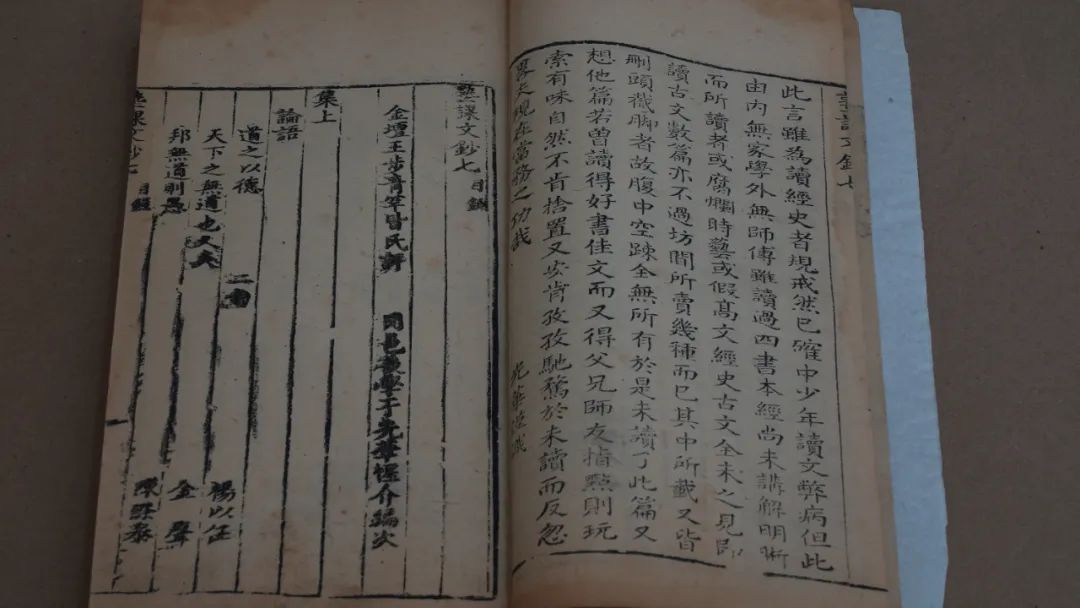 課文鈔七
此言雖為讀經史者規戒然已確中少年讀文弊病但此
由內無家學外無師傅雖讀過四書本經尚未講解明晰
而所讀者或腐爛時藝或假高文經史古文全未之見即
讀古文數篇亦不過坊間所賣幾種而已其中所載又皆
刪頭截脚者故腹中空踈全無所有於是未讀了此篇又
想他篇若曾讀得好書佳文而又得父兄師友指點則玩
索有味自然不肯捨置又安肯孜孜馳騖於未讀而反忽
畧夫現在當務之功哉 光華謹識
藝課文鈔七 目錄
金壇王步青罕皆民評 同邑後學于光華惺介編次
集上
論語
道之以德 二 楊以任
天下之無道也久矣 金聲
邦無道則愚 陳際泰
課文鈔七 目錄